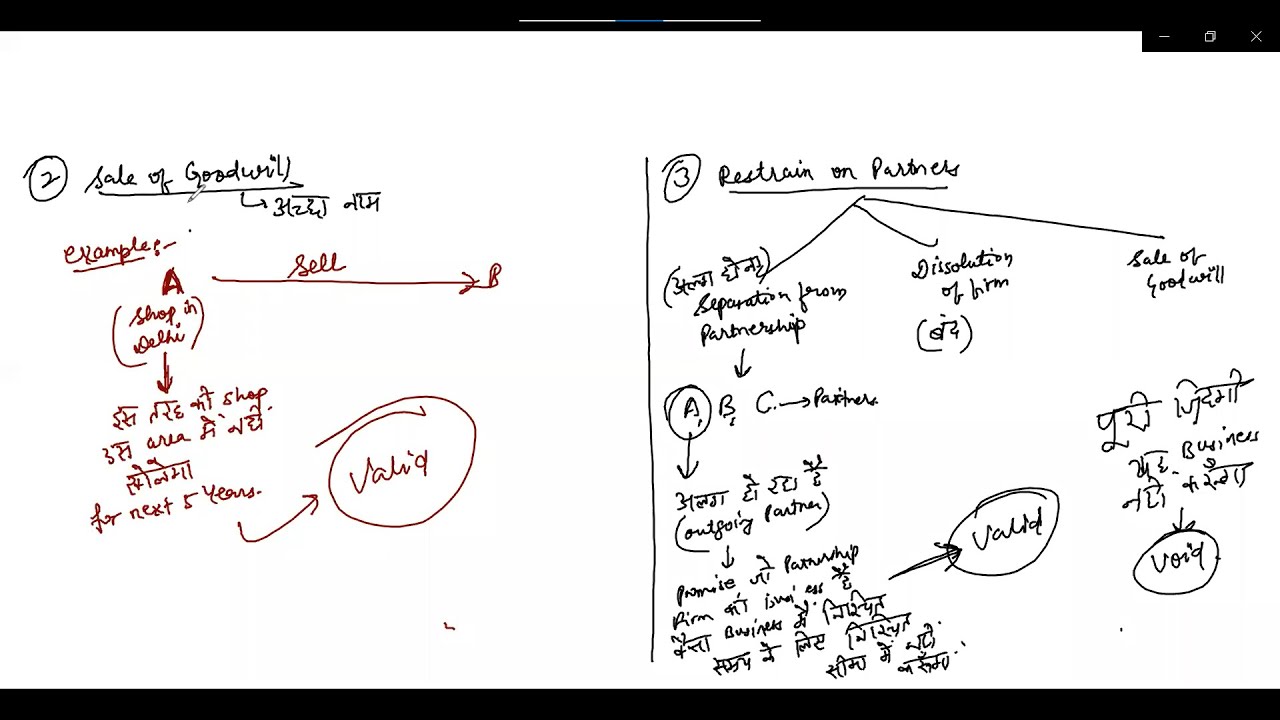 ② Sale of Goodwill
↳ अच्छा नाम
Example:-
A
Sell
B
(Shop in
Delhi)
इस तरह की shop
उस area में नहीं
खोलेगा
for next 5 Years.
Valid
③ Restrain on Partners
(अलग होना)
Separation from
Partnership
Dissolution
of firm
(बंद)
Sale of
Goodwill
A, B, C → Partners
अलग हो रहा है
(outgoing Partner)
Promise जो Partnership
firm की है
वैसा Business मैं निश्चित
समय के लिए निश्चित
सीमा में नहीं
करूँगा.
Valid
पूरी जिंदगी
यह Business
नहीं करेगा
Void